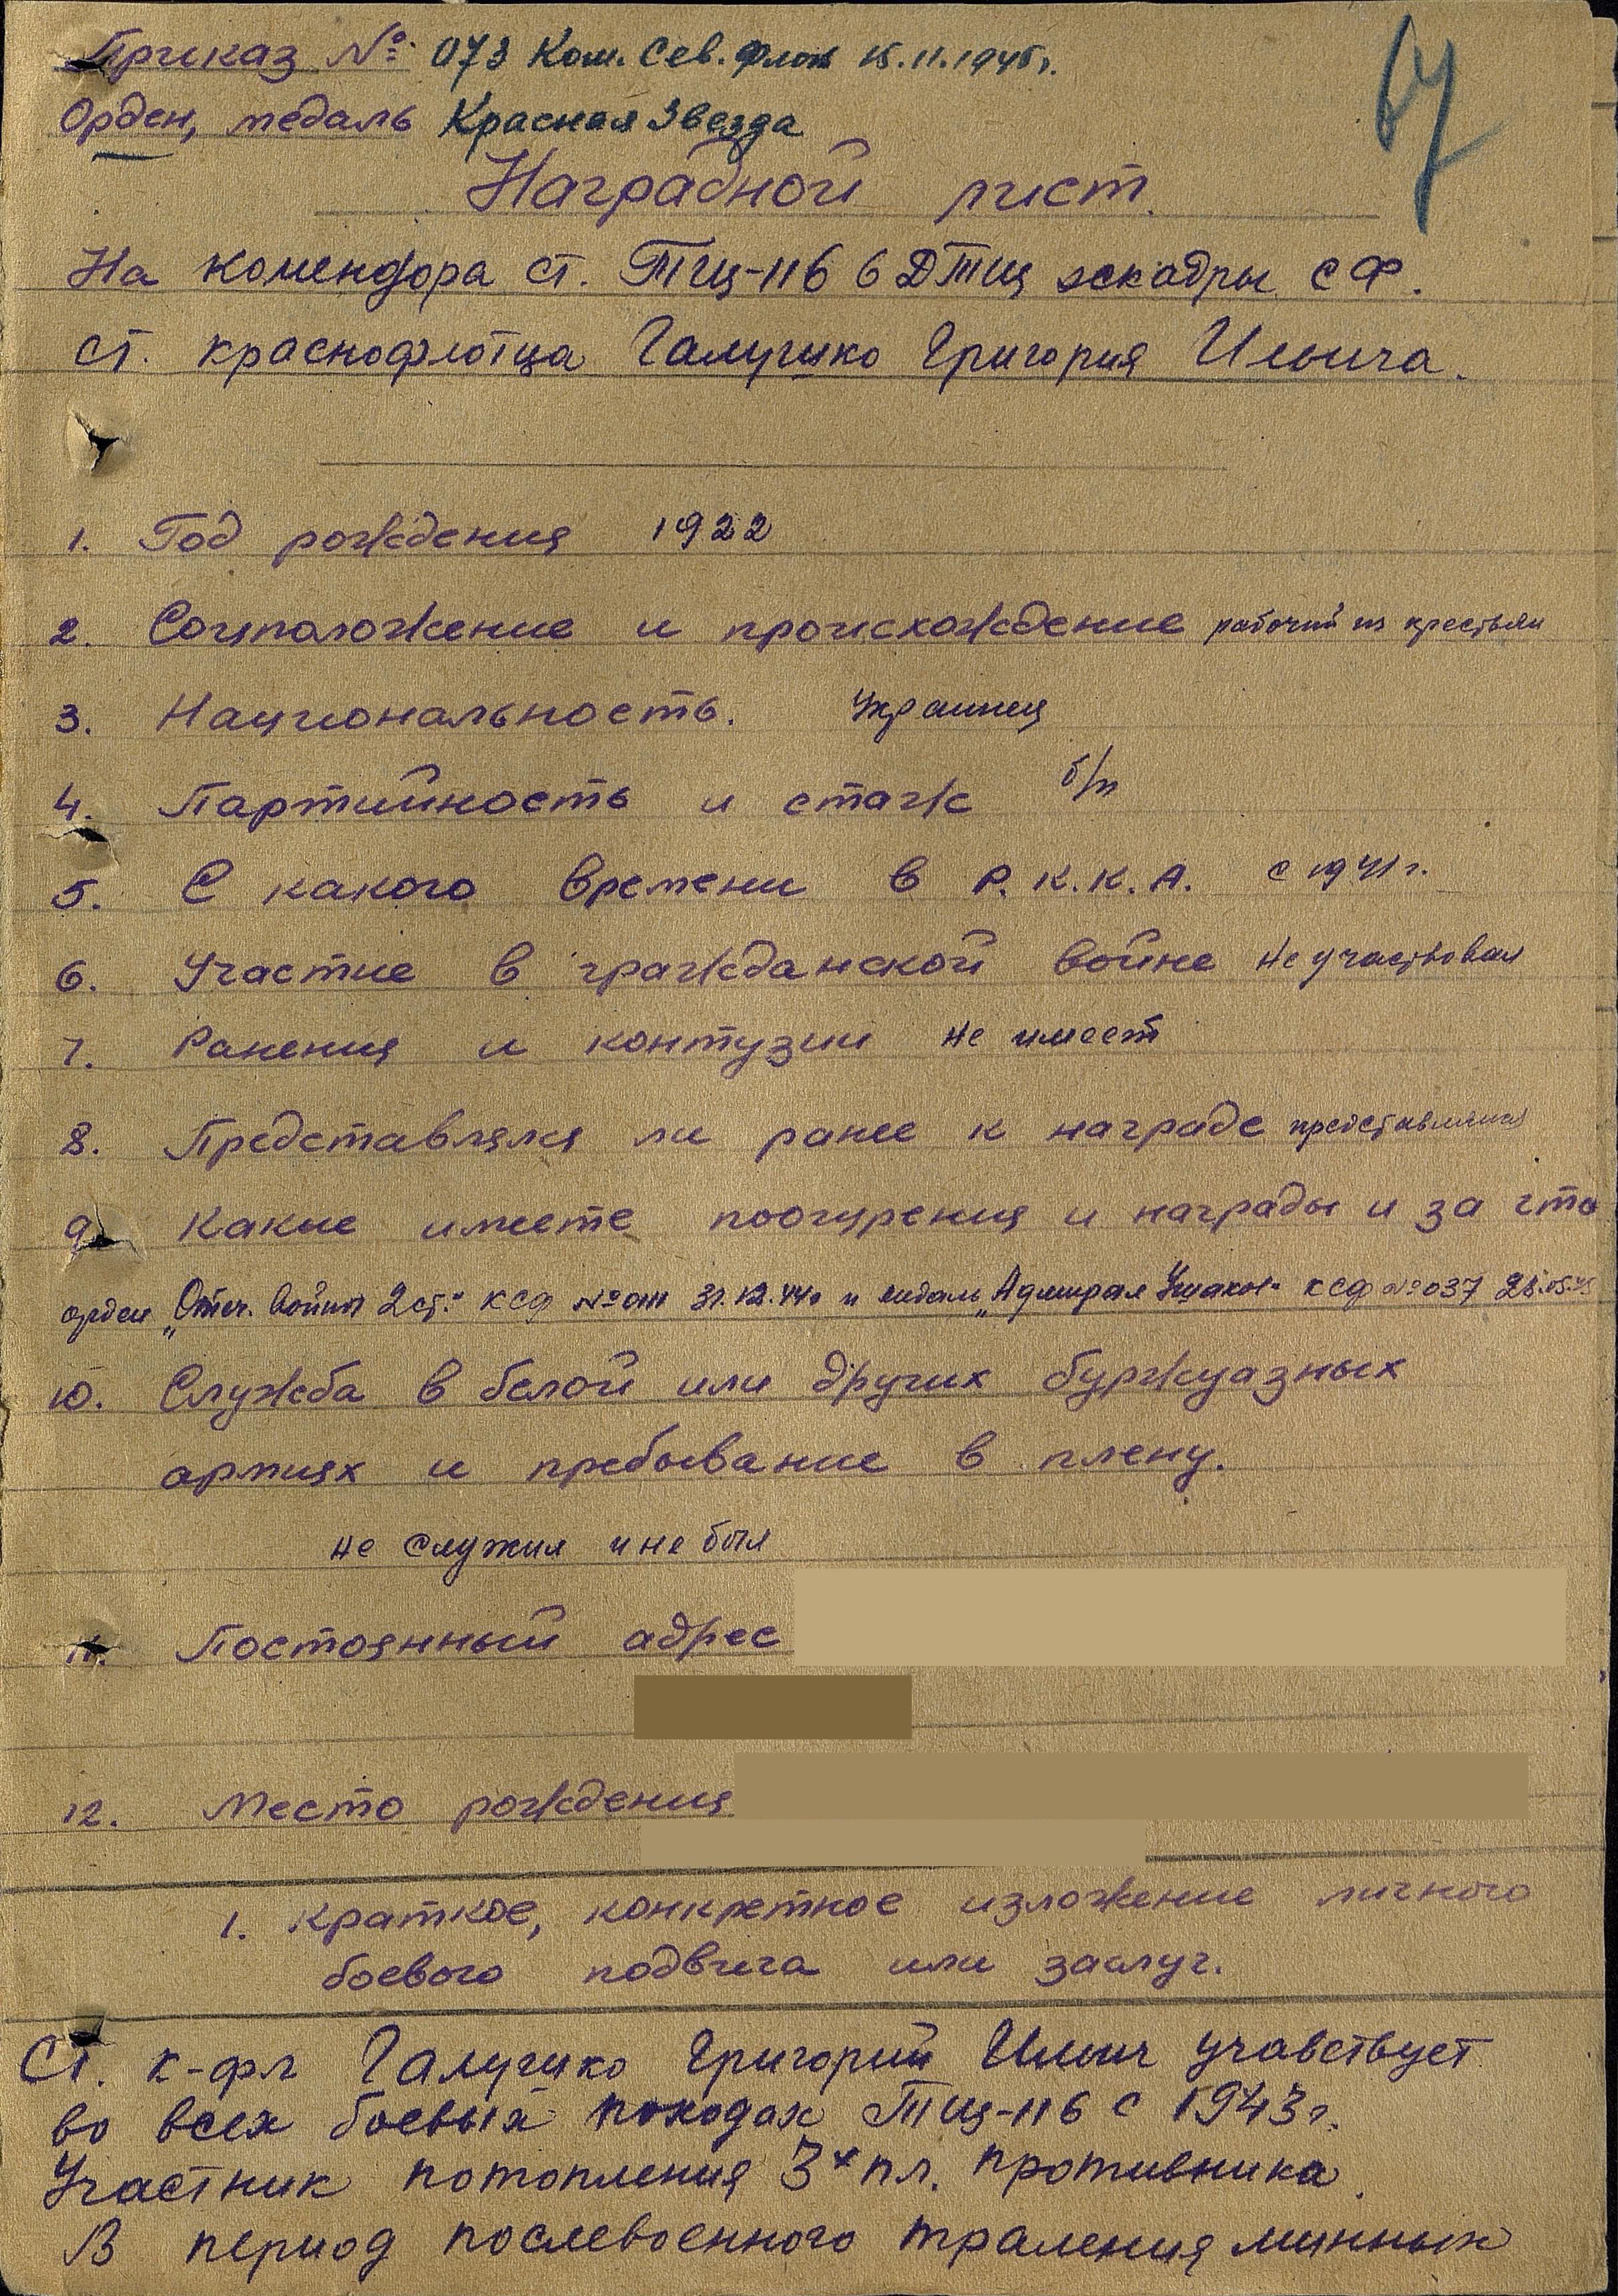 67
Приказ № 073 Ком. Сев. флота 15.11.1945г.
Орден, медаль Красная Звезда
Наградной лист.
На комендора ст. ТЩ-116 6 ДТЩ эскадры СФ.
ст. краснофлотца Галушко Григория Ильича.
1. Год рождения 1922
2. Соцположение и происхождение рабочий из крестьян
3. Национальность. Украинец
4. Партийность и стаж б/п
5. С какого времени в Р.К.К.А. с 1941г.
6. Участие в гражданской войне не участвовал
7. Ранения и контузии не имеет
8. Представлялся ли ранее к награде представлялся
9. Какие имеете поощрения и награды и за что
орден „Отеч. войны 2 ст." КСФ № 31.12.44г и медаль „Адмирал Ушаков" КСФ №037 28.05.45
10. Служба в белой или других буржуазных
армиях и пребывание в плену.
не служил и не был
11. Постоянный адрес
12. Место рождения
1. Краткое, конкретное изложение личного
боевого подвига или заслуг.
Ст. к-фл Галушко Григорий Ильич учавствует
во всех боевых походах ТЩ-116 с 1943г.
Участник потопления 3х пл. противника.
В период послевоенного траления минных